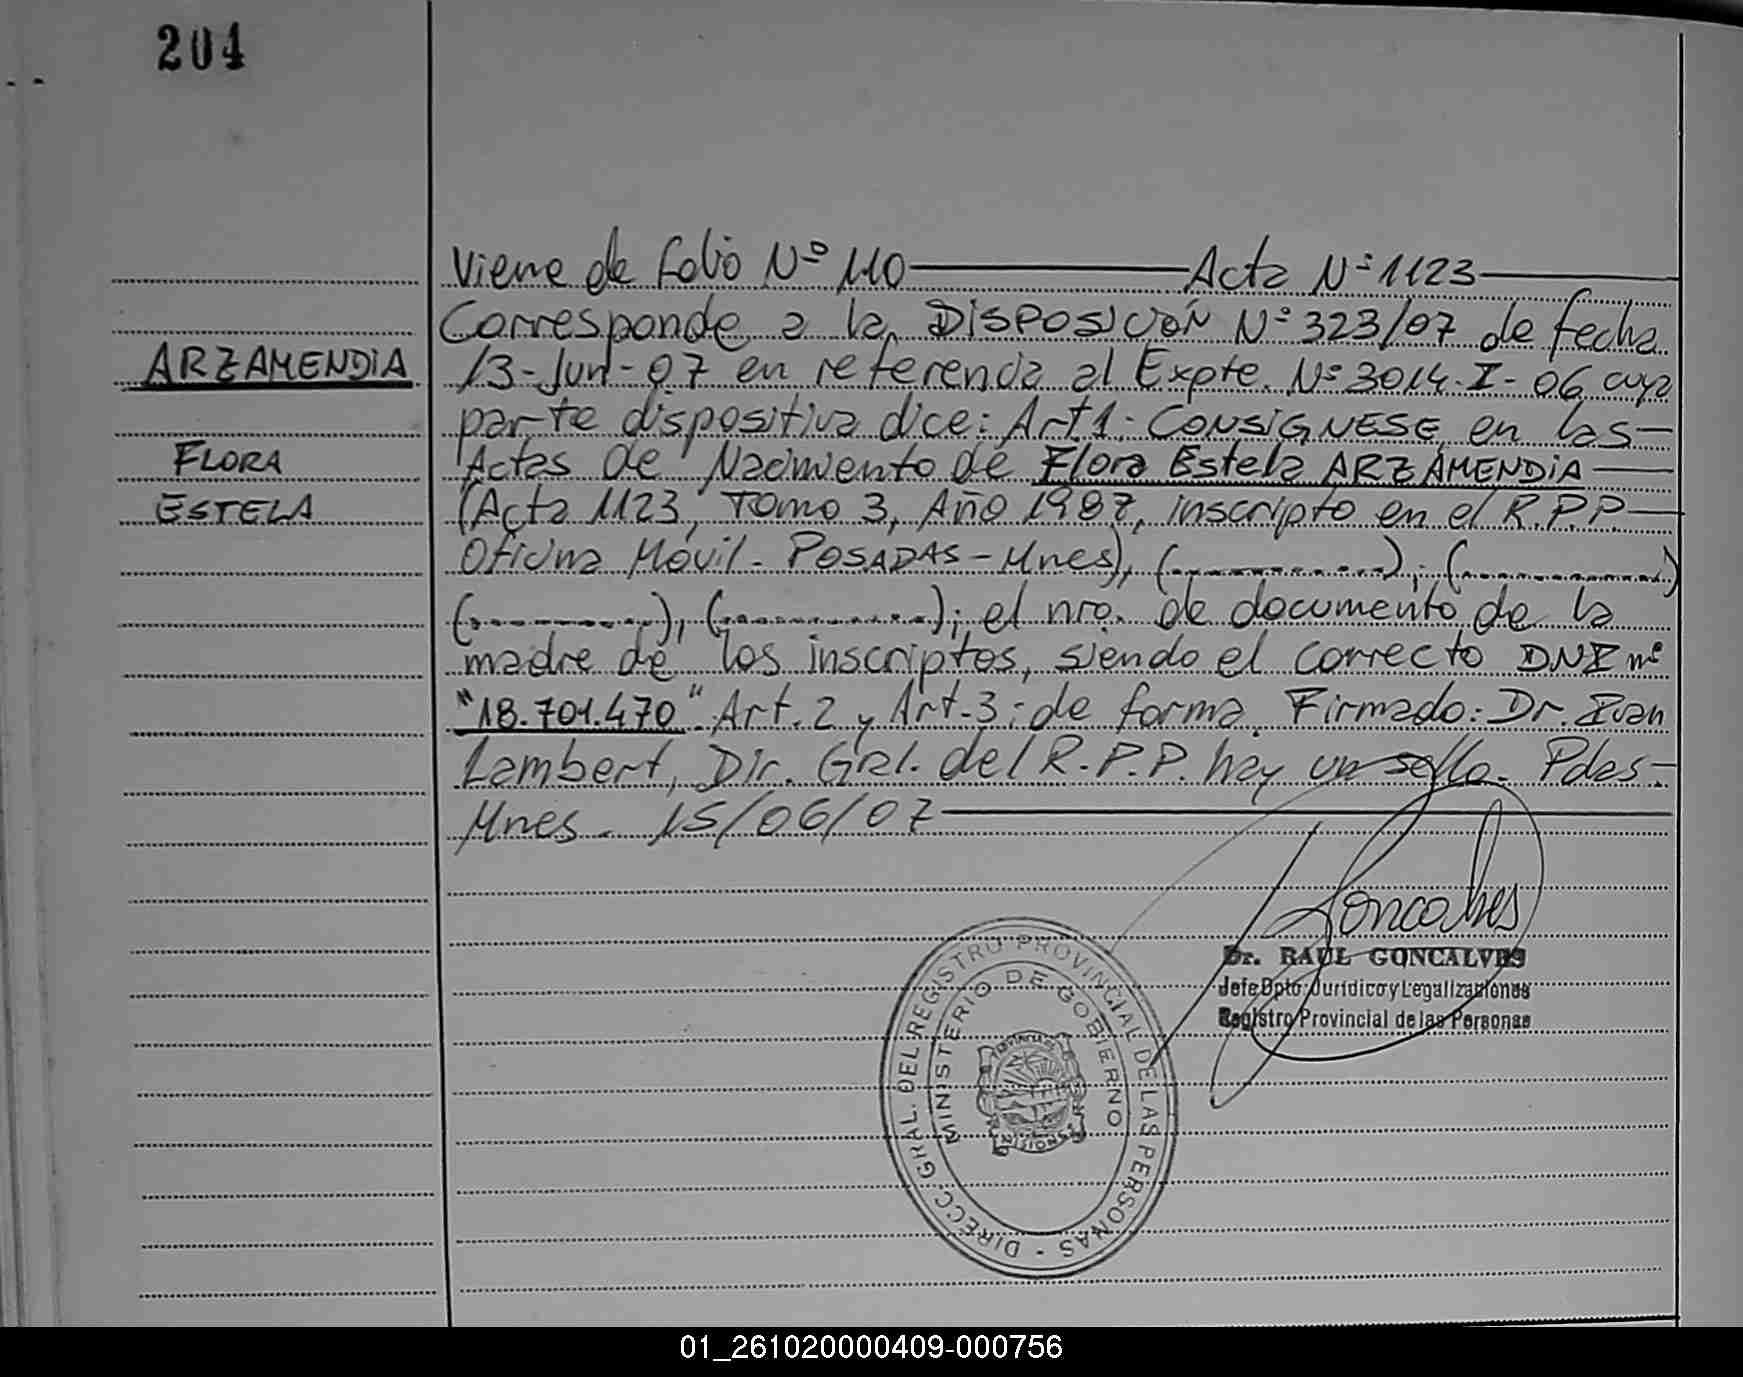 204
Viene de folio Nº 110 Acta Nº 1123
Corresponde a la DISPOSICIÓN Nº 323/07 de fecha
ARZAMENDIA
13-Jun-07 en referencia al Expte. Nº 3014-I-06 cuya
parte dispositiva dice: Art 1: CONSIGNESE en las
FLORA
Actas de Nacimiento de Flora Estela ARZAMENDIA
ESTELA
(Acta 1123, Tomo 3, Año 1987, inscripto en el R.P.P.
Oficina Móvil - POSADAS - Mnes), (............), (............)
(............), (............); el nro. de documento de la
madre de los inscriptos, siendo el correcto DNI nº
"18.701.470". Art. 2 y Art. 3: de forma. Firmado: Dr. Ivan
Lambert, Dir. Gral. del R.P.P. hay un sello. Pdas-
Mnes. 15/06/07
Goncalves
Dr. RAUL GONCALVES
Jefe Dpto. Jurídico y Legalizaciones
Registro Provincial de las Personas
DIRECC. GRAL. DEL REGISTRO PROVINCIAL DE LAS PERSONAS -
MINISTERIO DE GOBIERNO
PROVINCIA DE
MISIONES
01_261020000409-000756